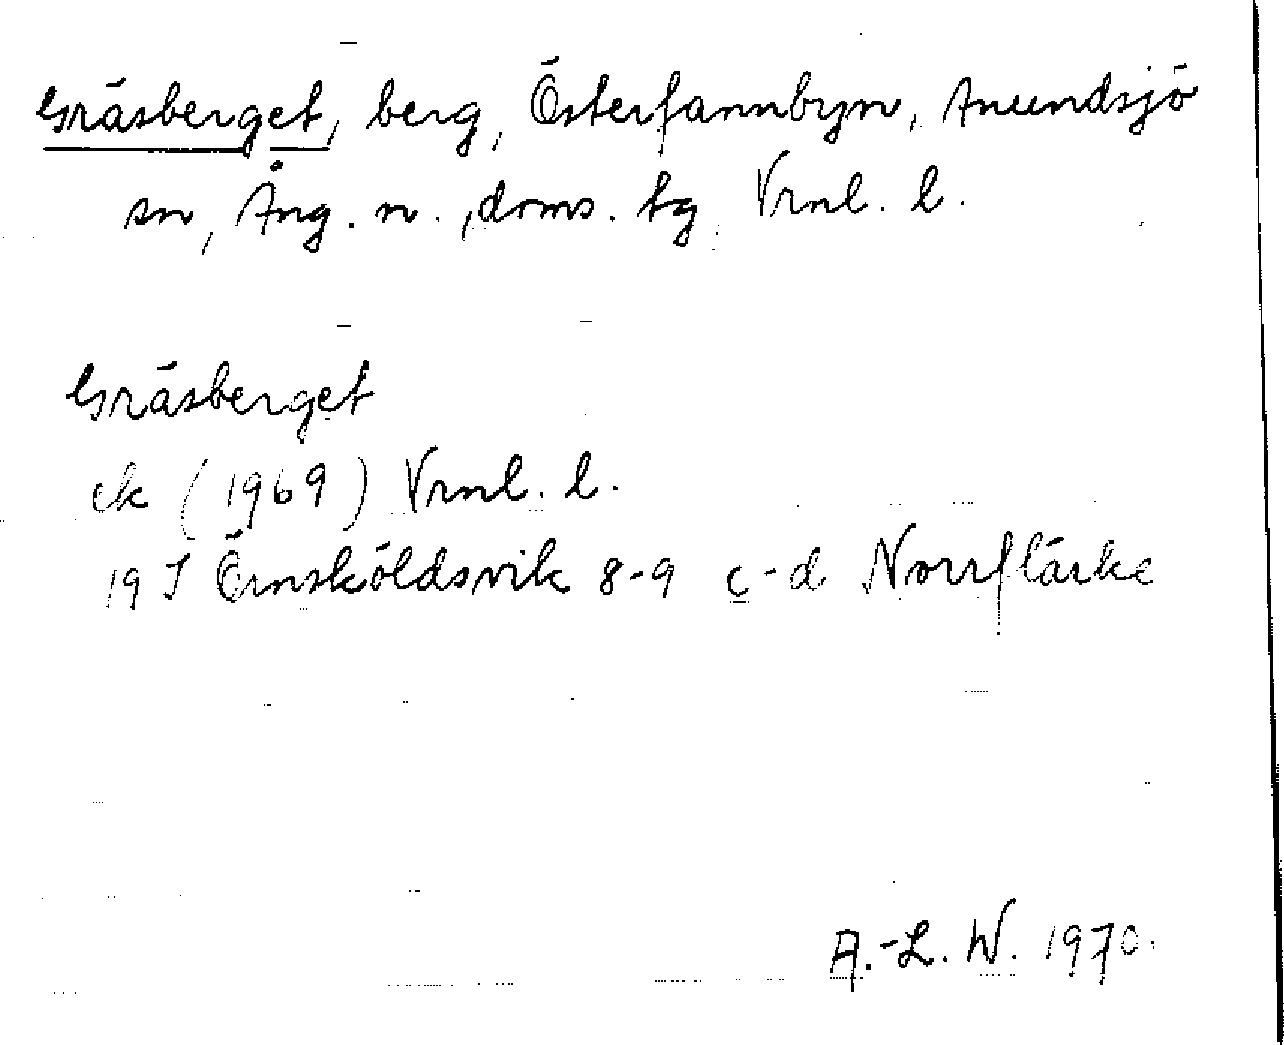 Gräsberget, berg, Österfannbyn, Anundsjö
sn, Ång. n., doms. tg Vrnl. l.
Gräsberget
ek (1969) Vrnl. l.
19 J Örnsköldsvik 8-9 c-d Norrflärke
A.-L. W. 1970.